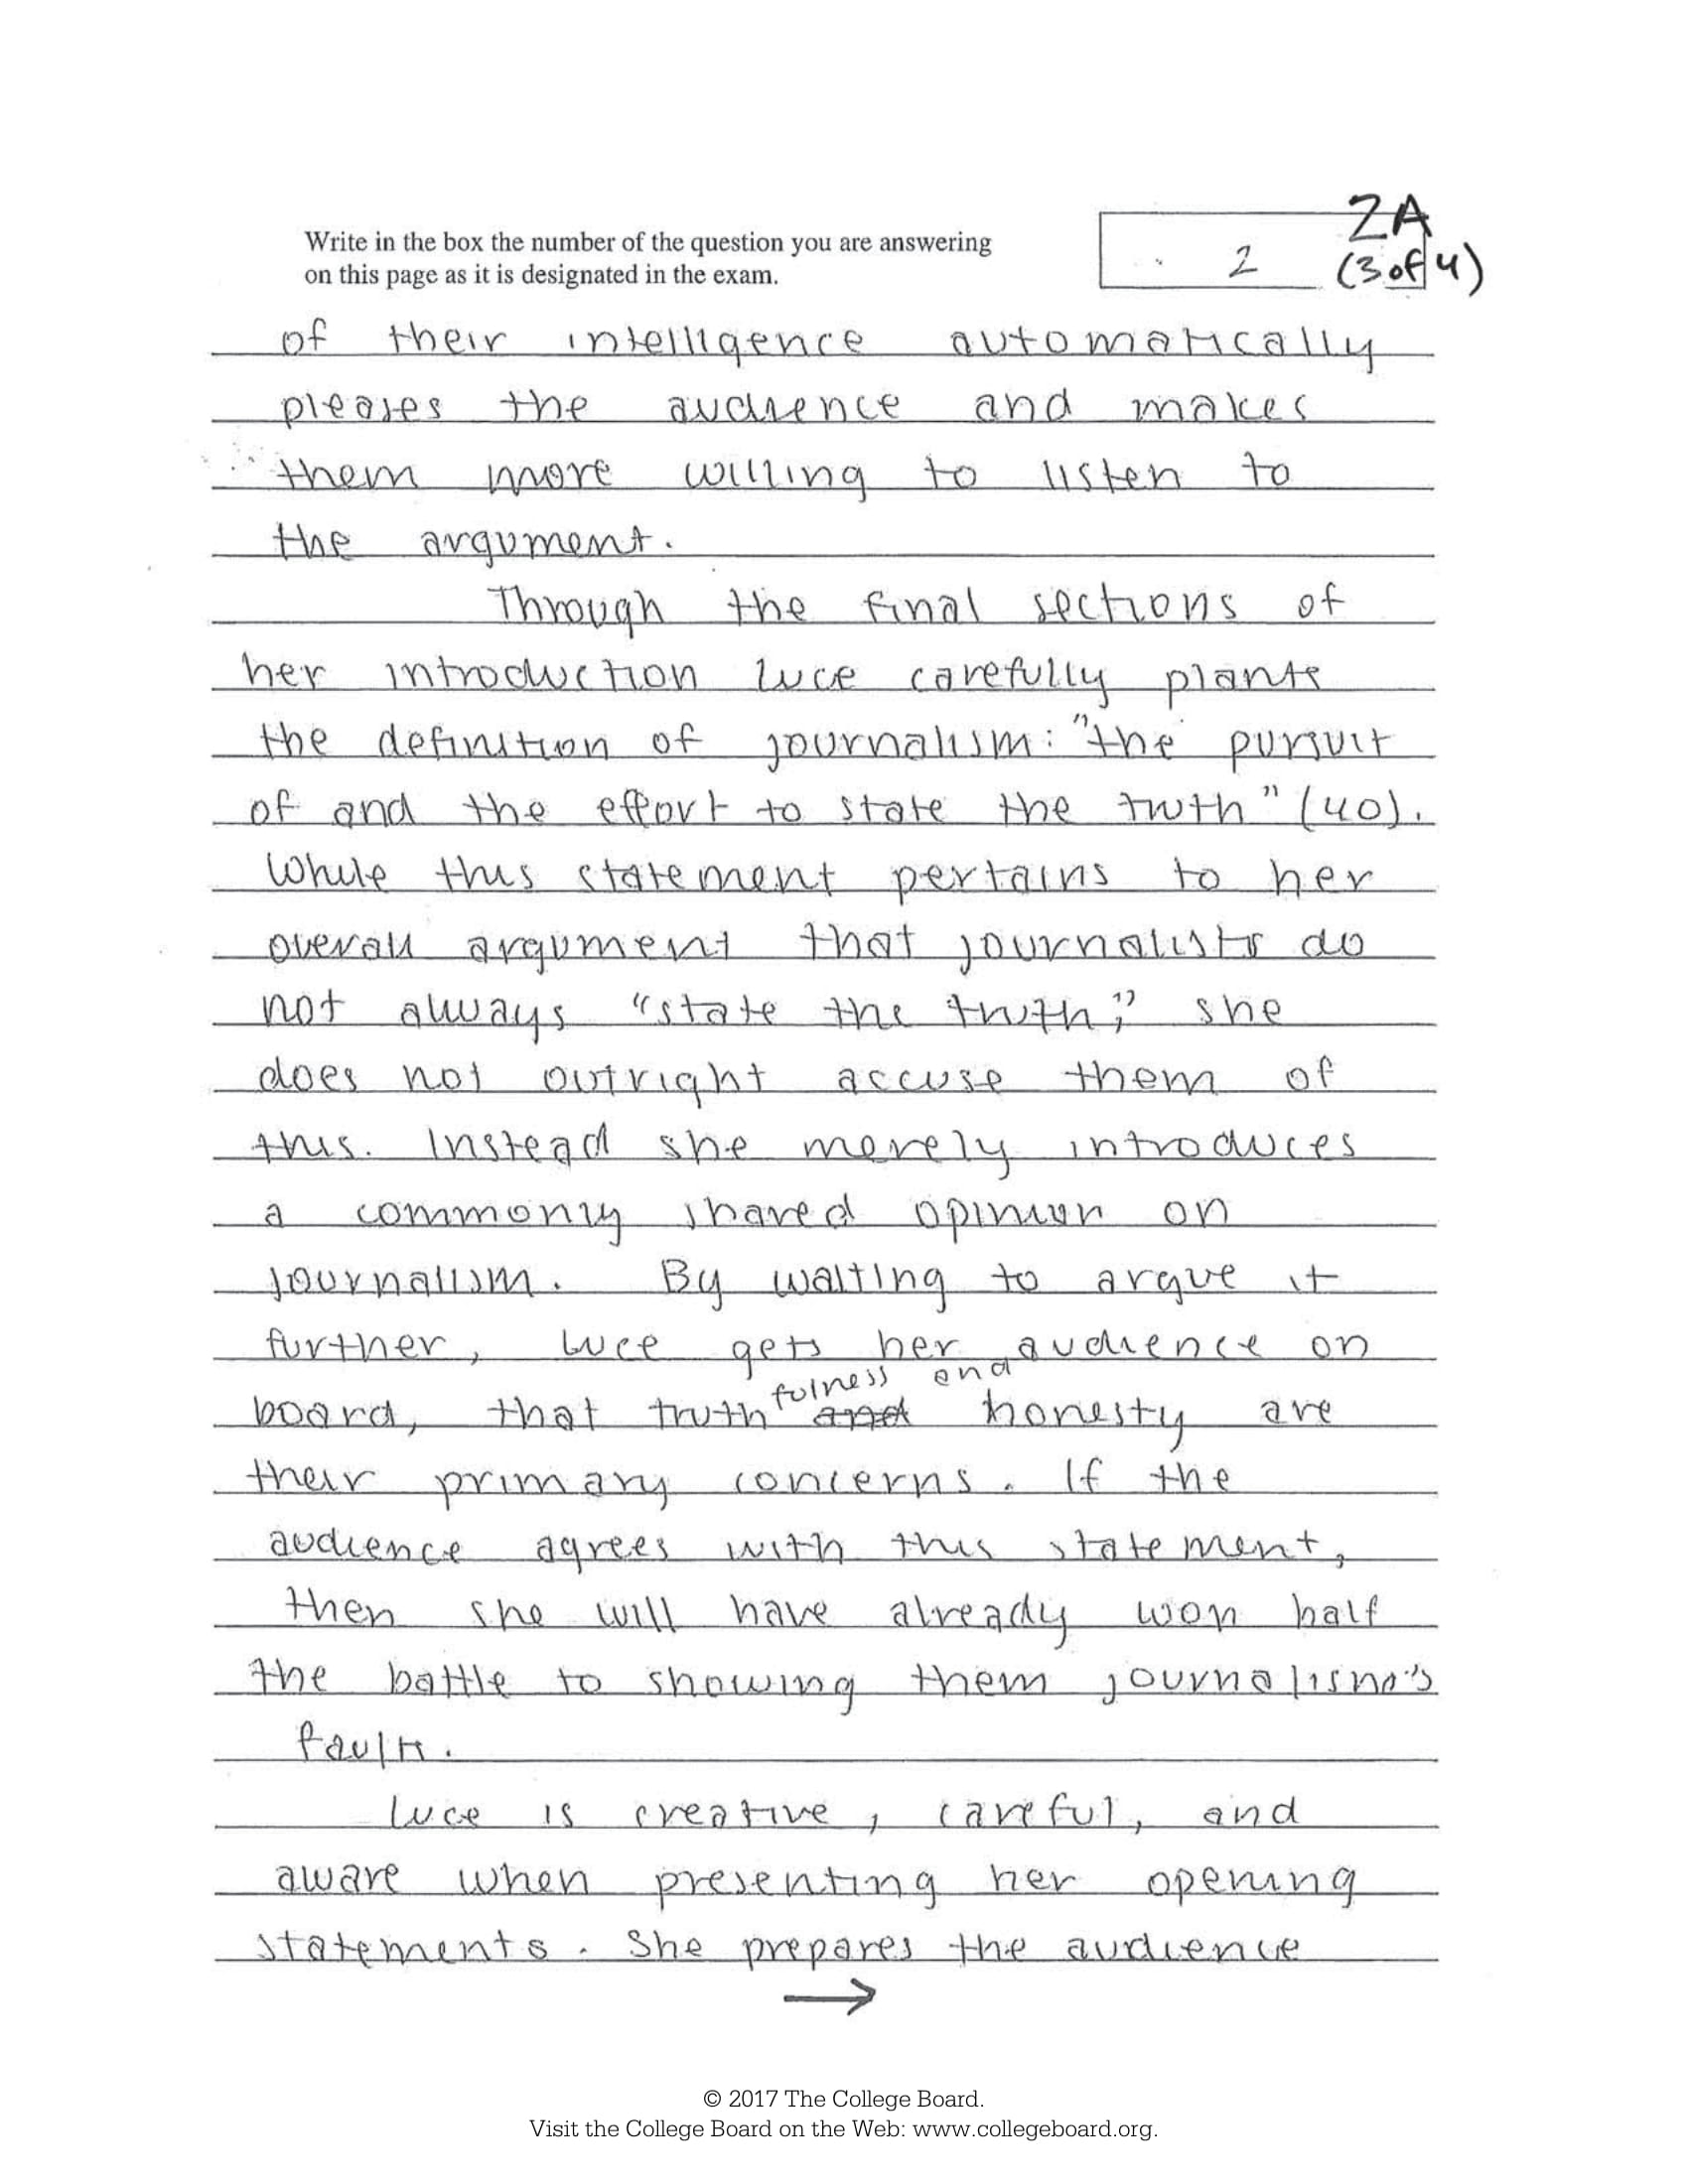 Write in the box the number of the question you are answering
on this page as it is designated in the exam.
2
2A
(3 of 4)
of their intelligence automatically
pleases the audience and makes
them more willing to listen to
the argument.
Through the final sections of
her introduction Luce carefully plants
the definition of journalism: "the pursuit
of and the effort to state the truth" (40).
While this statement pertains to her
overall argument that journalists do
not always "state the truth," she
does not outright accuse them of
this. Instead she merely introduces
a commonly shared opinion on
journalism. By waiting to argue it
further, Luce gets her audience on
board, that truthfulness and and honesty are
their primary concerns. If the
audience agrees with this statement,
then she will have already won half
the battle to showing them journalism's
faults.
Luce is creative, careful, and
aware when presenting her opening
statements. She prepares the audience
→
© 2017 The College Board.
Visit the College Board on the Web: www.collegeboard.org.